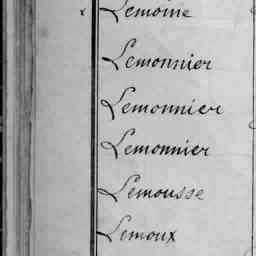 Lemoine
Lemonnier
Lemonnier
Lemonnier
Lemousse
Lemoux